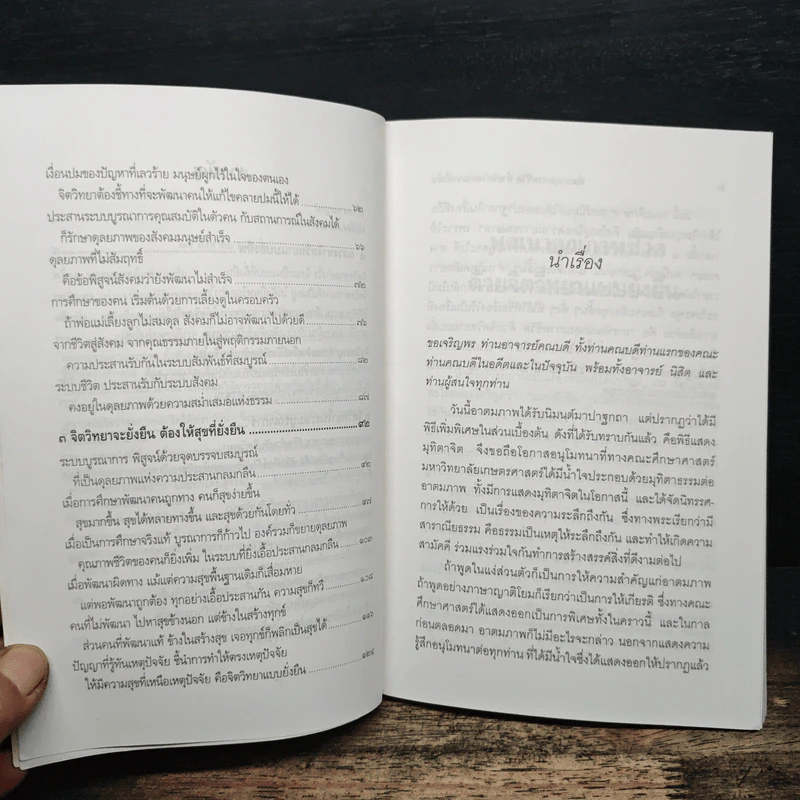 เงื่อนปมของปัญหาที่เลวร้าย มนุษย์ผูกไว้ในใจของตนเอง
จิตวิทยาต้องชี้ทางที่จะพัฒนาคนให้แก้ไขคลายปมนี้ให้ได้ ..................... ๖๒
ประสานระบบบูรณาการคุณสมบัติในตัวคน กับสถานการณ์ในสังคมได้
ก็รักษาดุลยภาพของสังคมมนุษย์สำเร็จ ..................... ๖๖
ดุลยภาพที่ไม่สัมฤทธิ์
คือข้อพิสูจน์สังคมว่ายังพัฒนาไม่สำเร็จ ..................... ๗๒
การศึกษาของคน เริ่มต้นด้วยการเลี้ยงดูในครอบครัว
ถ้าพ่อแม่เลี้ยงลูกไม่สมดุล สังคมก็ไม่อาจพัฒนาไปด้วยดี ..................... ๗๖
จากชีวิตสู่สังคม จากคุณธรรมภายในสู่พฤติกรรมภายนอก
ความประสานรับกันในระบบสัมพันธ์ที่สมบูรณ์ ..................... ๘๒
ระบบชีวิต ประสานรับกับระบบสังคม
คงอยู่ในดุลยภาพด้วยความสม่ำเสมอแห่งธรรม ..................... ๘๗
๓ จิตวิทยาจะยั่งยืน ต้องให้สุขที่ยั่งยืน ..................... ๙๒
ระบบบูรณาการ พิสูจน์ด้วยจุดบรรจบสมบูรณ์
ที่เป็นดุลยภาพแห่งความประสานกลมกลืน ..................... ๙๒
เมื่อการศึกษาพัฒนาคนถูกทาง คนก็สุขง่ายขึ้น
สุขมากขึ้น สุขได้หลายทางขึ้น และสุขด้วยกันโดยทั่ว ..................... ๙๗
เมื่อเป็นการศึกษาจริงแท้ บูรณาการก็ก้าวไป องค์รวมก็ขยายดุลยภาพ
คุณภาพชีวิตของคนก็ยิ่งเพิ่ม ในระบบที่ยิ่งเอื้อประสานกลมกลืน ............ ๑๐๓
เมื่อพัฒนาผิดทาง แม้แต่ความสุขพื้นฐานเดิมก็เสื่อมหาย
แต่พอพัฒนาถูกต้อง ทุกอย่างเอื้อประสานกัน ความสุขก็ทวี ............ ๑๐๘
คนที่ไม่พัฒนา ไปหาสุขข้างนอก แต่ข้างในสร้างทุกข์
ส่วนคนที่พัฒนาแท้ ข้างในสร้างสุข เจอทุกข์ก็พลิกเป็นสุขได้ ............ ๑๑๖
ปัญญาที่รู้ทันเหตุปัจจัย ชี้นำการทำให้ตรงเหตุปัจจัย
ให้มีความสุขที่เหนือเหตุปัจจัย คือจิตวิทยาแบบยั่งยืน ..................... ๑๒๔
นำเรื่อง
ขอเจริญพร ท่านอาจารย์คณบดี ทั้งท่านคณบดีท่านแรกของคณะ
ท่านคณบดีในอดีตและในปัจจุบัน พร้อมทั้งอาจารย์ นิสิต และ
ท่านผู้สนใจทุกท่าน
วันนี้อาตมภาพได้รับนิมนต์มาปาฐกถา แต่ปรากฏว่าได้มี
พิธีเพิ่มพิเศษในส่วนเบื้องต้น ดังที่ได้รับทราบกันแล้ว คือพิธีแสดง
มุทิตาจิต จึงขอถือโอกาสอนุโมทนาที่ทางคณะศึกษาศาสตร์
มหาวิทยาลัยเกษตรศาสตร์ได้มีน้ำใจประกอบด้วยมุทิตาธรรมต่อ
อาตมภาพ ทั้งมีการแสดงมุทิตาจิตในโอกาสนี้ และได้จัดนิทรรศ-
การให้ด้วย เป็นเรื่องของความระลึกถึงกัน ซึ่งทางพระเรียกว่ามี
สาราณียธรรม คือธรรมเป็นเหตุให้ระลึกถึงกัน และทำให้เกิดความ
สามัคคี ร่วมแรงร่วมใจกันทำการสร้างสรรค์สิ่งที่ดีงามต่อไป
ถ้าพูดในแง่ส่วนตัวก็เป็นการให้ความสำคัญแก่อาตมภาพ
ถ้าพูดอย่างภาษาญาติโยมก็เรียกว่าเป็นการให้เกียรติ ซึ่งทางคณะ
ศึกษาศาสตร์ได้แสดงออกเป็นการพิเศษทั้งในคราวนี้ และในกาล
ก่อนตลอดมา อาตมภาพก็ไม่มีอะไรจะกล่าว นอกจากแสดงความ
รู้สึกอนุโมทนาต่อทุกท่าน ที่ได้มีน้ำใจซึ่งได้แสดงออกให้ปรากฏแล้ว